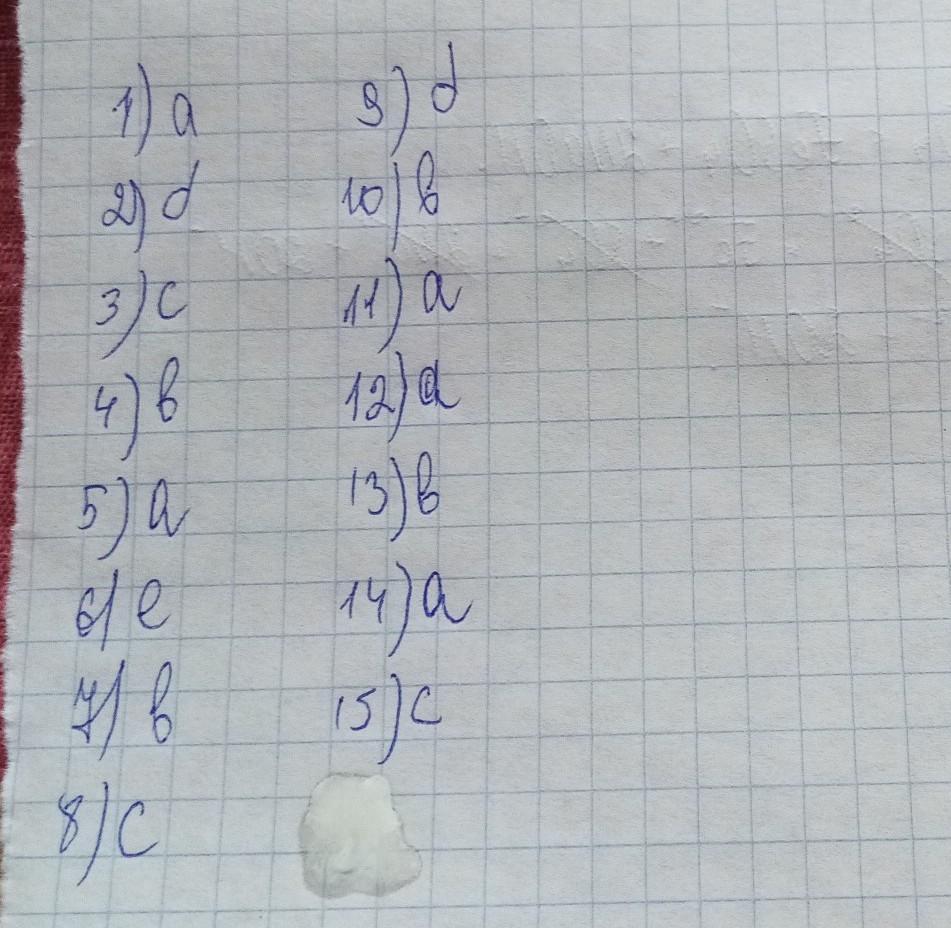 1) a
2) d
3) c
4) b
5) a
6) e
7) b
8) c
9) d
10) b
11) a
12) a
13) b
14) a
15) c